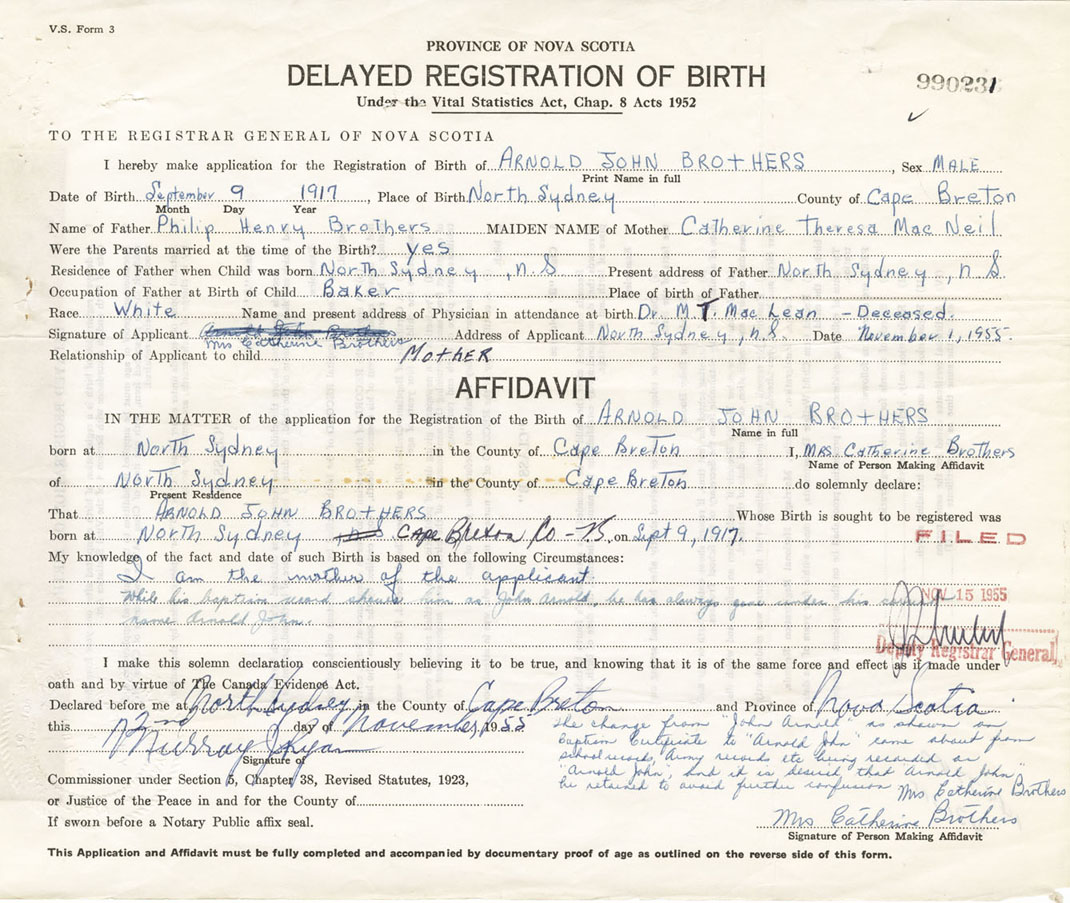 V.S. Form 3
PROVINCE OF NOVA SCOTIA
DELAYED REGISTRATION OF BIRTH
Under the Vital Statistics Act, Chap. 8 Acts 1952
990231
TO THE REGISTRAR GENERAL OF NOVA SCOTIA
I hereby make application for the Registration of Birth of ARNOLD JOHN BROTHERS, Sex MALE
Print Name in full
Date of Birth September 9 1917, Place of Birth North Sydney County of Cape Breton
Month Day Year
Name of Father Philip Henry Brothers MAIDEN NAME of Mother Catherine Theresa Mac Neil
Were the Parents married at the time of the Birth? yes
Residence of Father when Child was born North Sydney, n S Present address of Father North Sydney, n S.
Occupation of Father at Birth of Child Baker Place of birth of Father
Race White Name and present address of Physician in attendance at birth Dr. M T. Mac Lean - Deceased.
Signature of Applicant Arnold John Brothers Address of Applicant North Sydney, n.S. Date November 1, 1955
Mrs Catherine Brothers
Relationship of Applicant to child MOTHER
AFFIDAVIT
IN THE MATTER of the application for the Registration of the Birth of ARNOLD JOHN BROTHERS
Name in full
born at North Sydney in the County of Cape Breton I, Mrs Catherine Brothers
Name of Person Making Affidavit
of North Sydney in the County of Cape Breton do solemnly declare:
Present Residence
That ARNOLD JOHN BROTHERS Whose Birth is sought to be registered was
born at North Sydney n S Cape Breton Co on Sept 9, 1917.
FILED
My knowledge of the fact and date of such Birth is based on the following Circumstances:
I am the mother of the applicant.
While his baptism record shows him as John Arnold, he has always gone under his
NOV 15 1955
name Arnold John.
Deputy Registrar General
I make this solemn declaration conscientiously believing it to be true, and knowing that it is of the same force and effect as if made under
oath and by virtue of The Canada Evidence Act.
Declared before me at North Sydney in the County of Cape Breton and Province of Nova Scotia
this 2nd day of November, 1955
The change from "John Arnold" as shown on
Baptism Certificate to "Arnold John" came about from
school records, Army records etc being recorded as
"Arnold John", and it is desired that "Arnold John"
be retained to avoid further confusion Mrs. Catherine Brothers
Murray J Ryan
Signature of
Commissioner under Section 5, Chapter 38, Revised Statutes, 1923,
or Justice of the Peace in and for the County of
If sworn before a Notary Public affix seal.
Mrs Catherine Brothers
Signature of Person Making Affidavit
This Application and Affidavit must be fully completed and accompanied by documentary proof of age as outlined on the reverse side of this form.